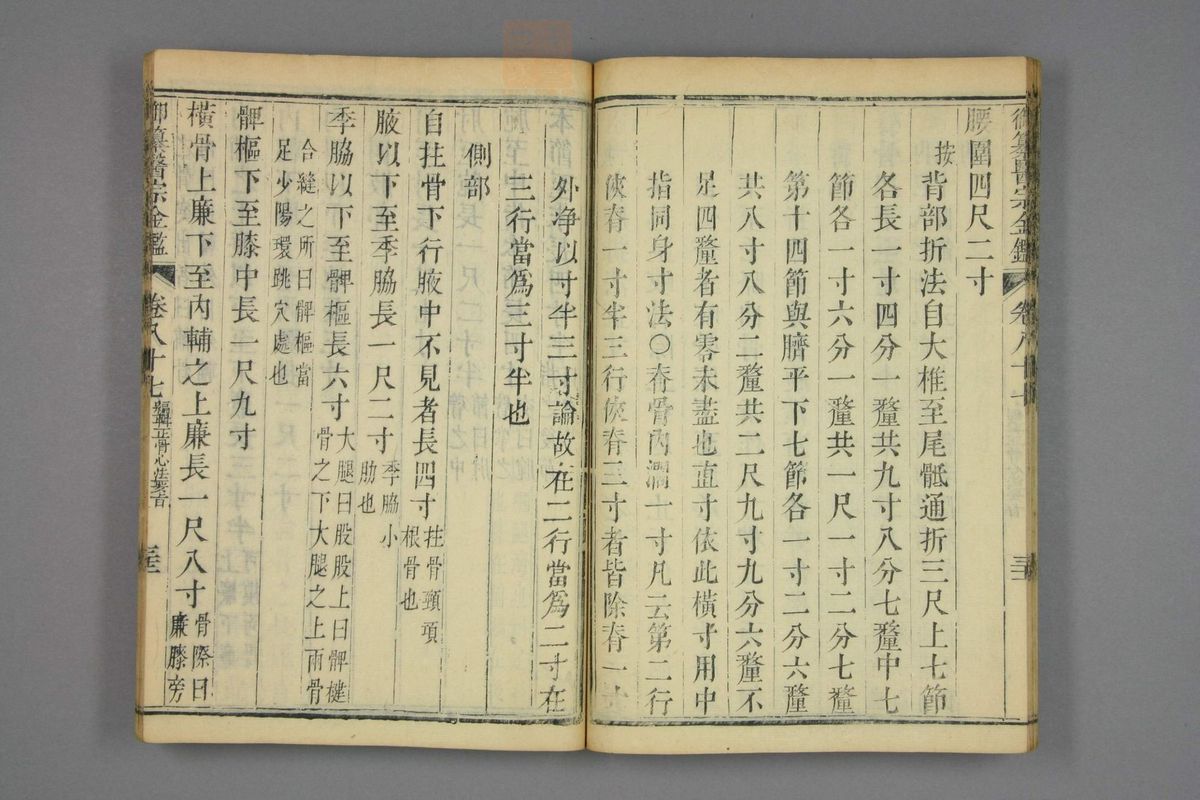 御纂醫宗金鑑 卷八十七
腰圍四尺二寸
按
背部折法自大椎至尾骶通折三尺上七節
各長一寸四分一釐共九寸八分七釐中七
節各一寸六分一釐共一尺一寸二分七釐
第十四節與臍平下七節各一寸二分六釐
共八寸八分二釐共二尺九寸九分六釐不
足四釐者有零未盡也直寸依此橫寸用中
指同身寸法〇脊骨內濶一寸凡云第二行
俠脊一寸半三行俠脊三寸者皆除脊一寸
外净以寸半三寸論故在二行當爲二寸在
三行當爲三寸半也
側部
自拄骨下行腋中不見者長四寸拄骨頸項
根骨也
腋以下至季脇長一尺二寸季脇小
肋也
季脇以下至髀樞長六寸大腿曰股股上曰髀楗
骨之下大腿之上兩骨
合縫之所曰髀樞當
足少陽環跳穴處也
髀樞下至膝中長一尺九寸
橫骨上廉下至內輔之上廉長一尺八寸骨際曰
廉膝旁
御纂醫宗金鑑 卷八十七 編輯正骨心法要旨